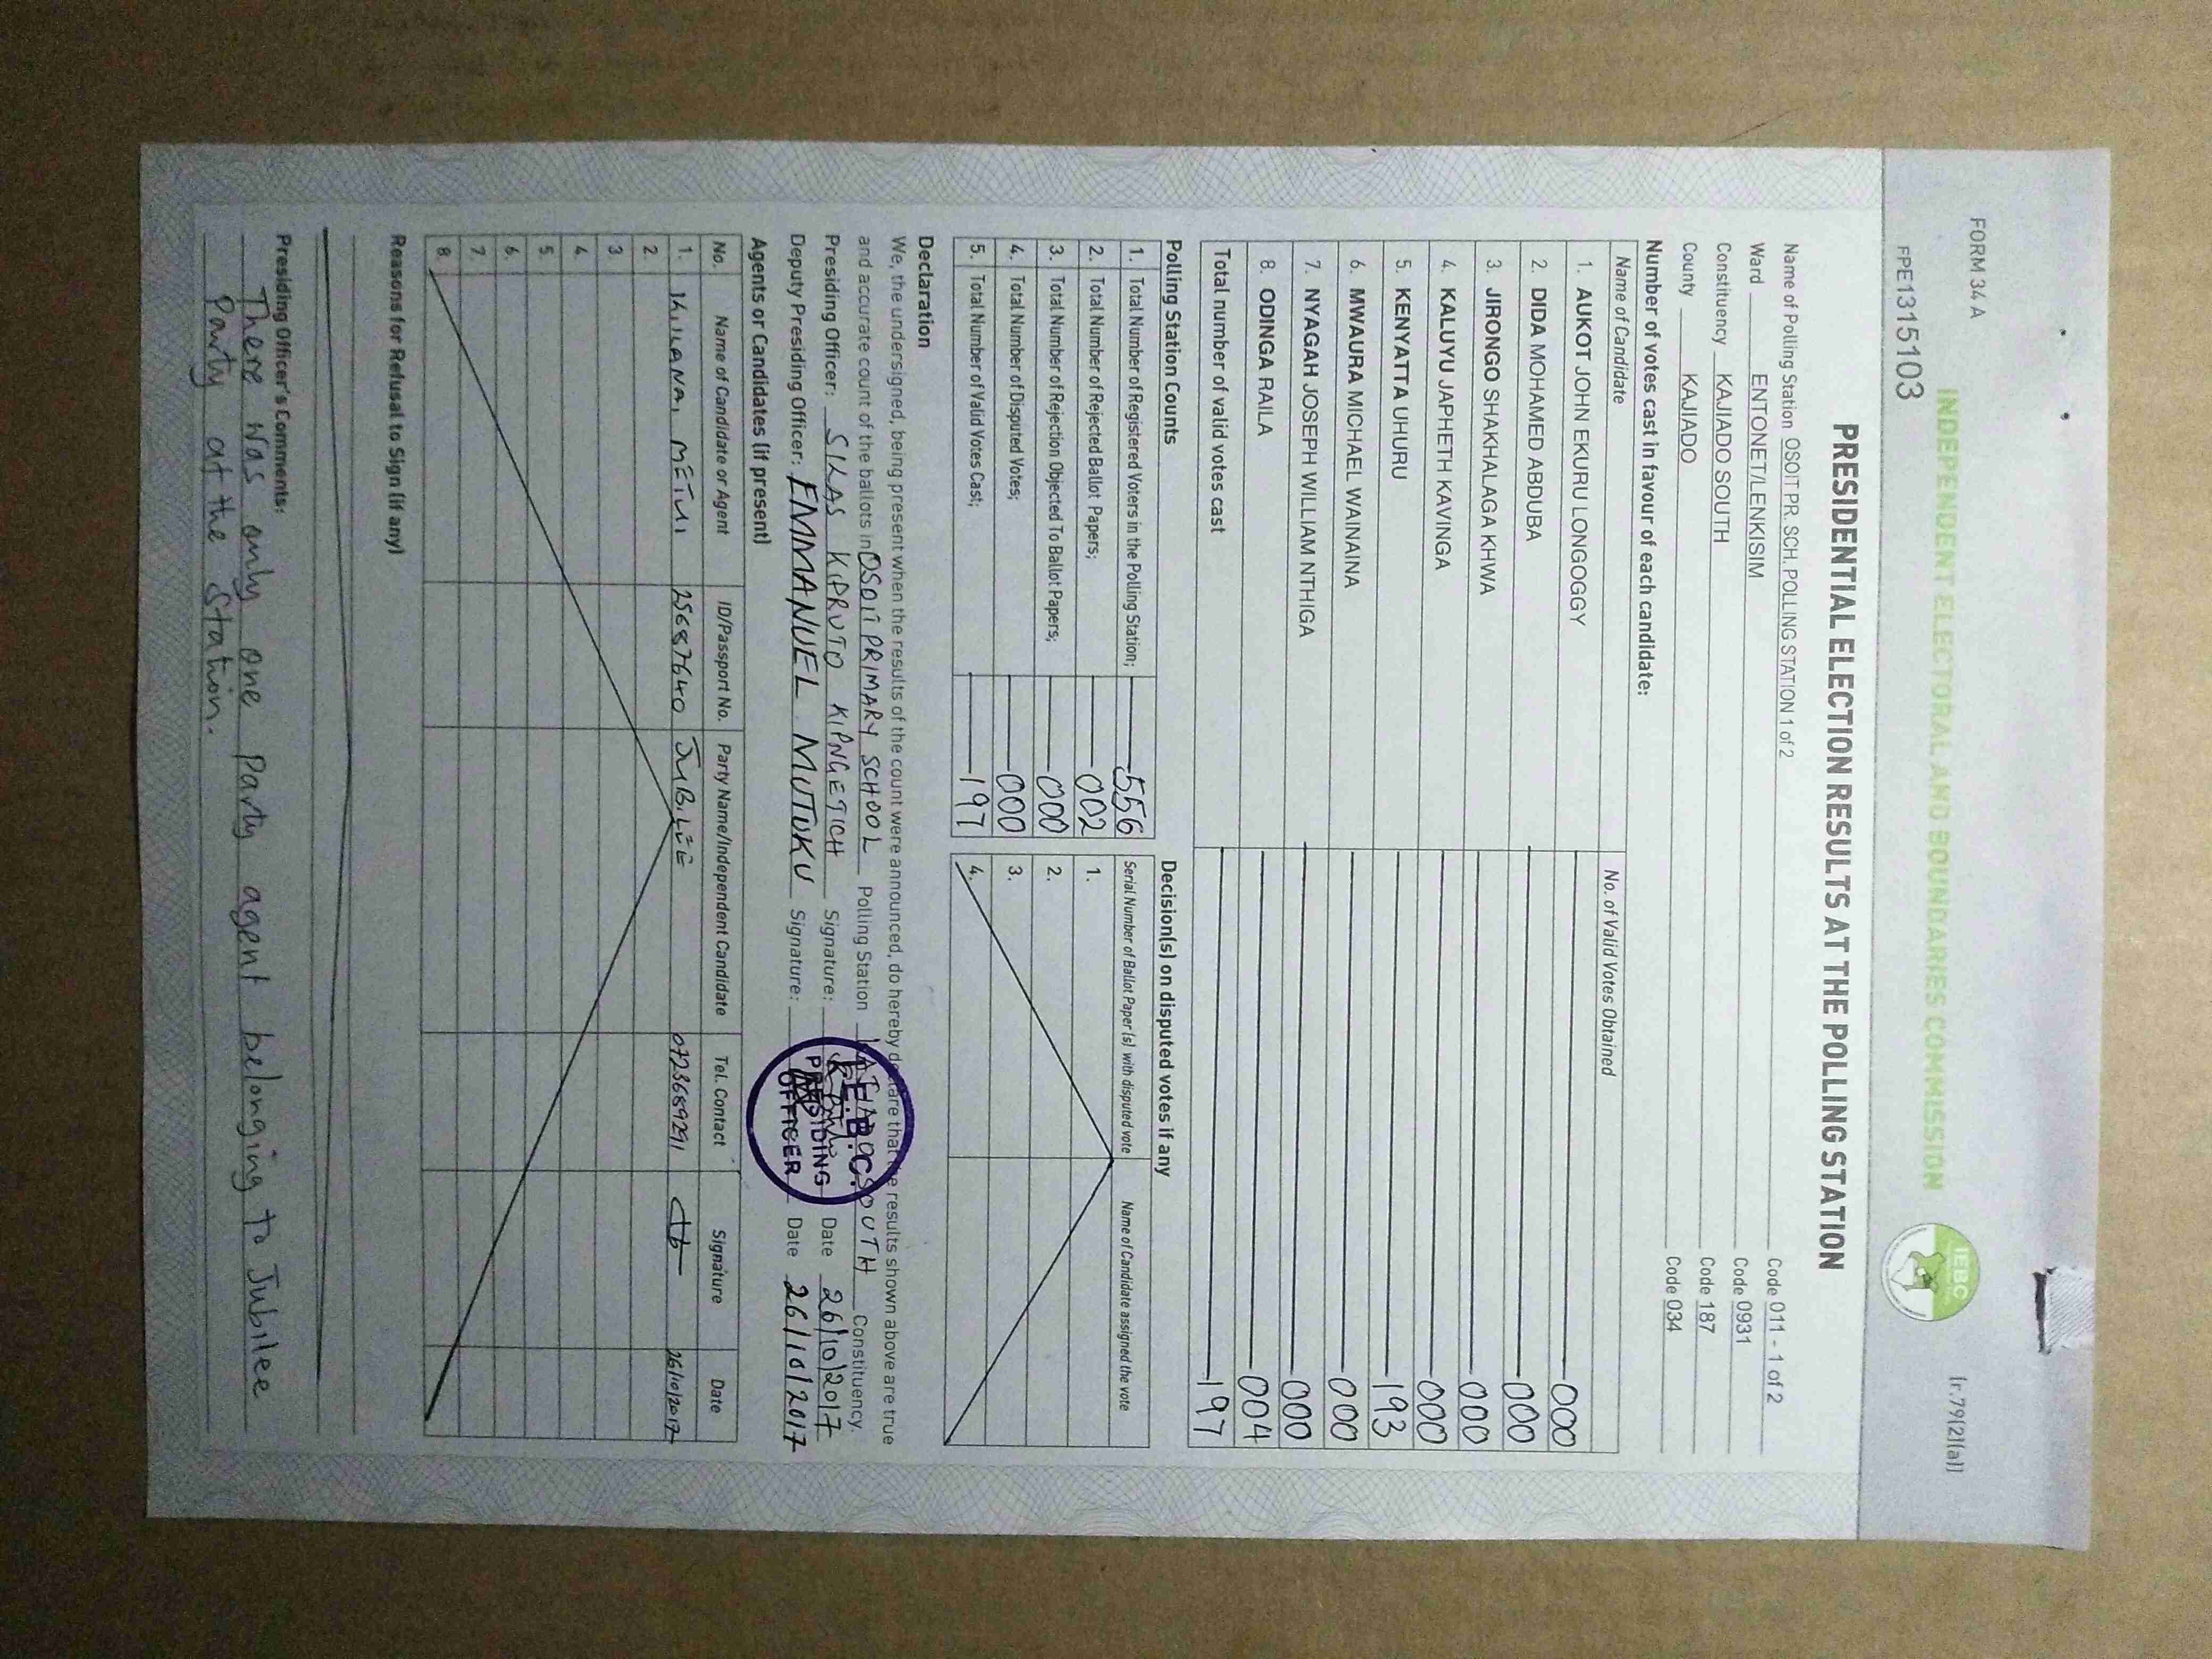 FORM 34 A
[r.79(2)(a)]
INDEPENDENT ELECTORAL AND BOUNDARIES COMMISSION
IEBC
FPE1315103
PRESIDENTIAL ELECTION RESULTS AT THE POLLING STATION
Name of Polling Station OSOIT PR. SCH. POLLING STATION 1 of 2 Code 011 - 1 of 2
Ward ENTONET/LENKISIM Code 0931
Constituency KAJIADO SOUTH Code 187
County KAJIADO Code 034
Number of votes cast in favour of each candidate:
Name of Candidate No. of Valid Votes Obtained
1. AUKOT JOHN EKURU LONGOGGY 000
2. DIDA MOHAMED ABDUBA 000
3. JIRONGO SHAKHALAGA KHWA 000
4. KALUYU JAPHETH KAVINGA 000
5. KENYATTA UHURU 193
6. MWAURA MICHAEL WAINAINA 000
7. NYAGAH JOSEPH WILLIAM NTHIGA 000
8. ODINGA RAILA 004
Total number of valid votes cast 197
Polling Station Counts
1. Total Number of Registered Voters in the Polling Station; 556
2. Total Number of Rejected Ballot Papers; 002
3. Total Number of Rejection Objected To Ballot Papers; 000
4. Total Number of Disputed Votes; 000
5. Total Number of Valid Votes Cast; 197
Decision(s) on disputed votes if any
Serial Number of Ballot Paper (s) with disputed vote Name of Candidate assigned the vote
1.
2.
3.
4.
Declaration
We, the undersigned, being present when the results of the count were announced, do hereby declare that the results shown above are true
and accurate count of the ballots in OSOIT PRIMARY SCHOOL Polling Station KAJIADO SOUTH Constituency.
Presiding Officer: SILAS KIPRUTO KIPNGETICH Signature: Date 26/10/2017
Deputy Presiding Officer: EMMANUEL MUTUKU Signature: Date 26/10/2017
I.E.B.C.
PRESIDING
OFFICER
Agents or Candidates (if present)
No. Name of Candidate or Agent ID/Passport No. Party Name/Independent Candidate Tel. Contact Signature Date
1. METUI 25687640 JUBILEE 0723689291 26/10/2017
2.
3
4
5
6
7
8
Reasons for Refusal to Sign (if any)
Presiding Officer's Comments:
There was only one party agent belonging to Jubilee
Party at the station.